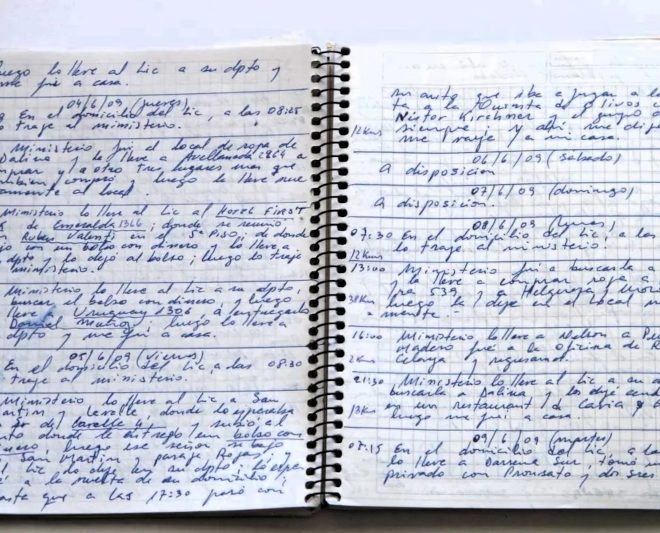 luego lo lleve al Lic a su dpto y
me fui a casa.
04/6/09 (jueves)
En el domicilio del Lic, a las 08:25
lo traje al ministerio.
Ministerio, fui al local de ropa de
Dalina y la lleve a Avellaneda
comprar y a otro tres lugares mas que
tambien compro luego la lleve nue
vamente al local.
Ministerio lo lleve al Lic al Hotel FIRST
de Esmeralda 1366; donde se reunió
Ruben Valenti en 5º PISO; de donde
bajo con un bolso con dinero y lo lleve a
dpto y lo dejó al bolso; luego lo traje
ministerio.
Ministerio lo lleve al Lic a su dpto,
buscar el bolso con dinero, y luego
lleve Uruguay 1306, a entregarlo
Daniel Muñoz, luego lo lleve a
dpto y me fui a casa.
05/6/09 (viernes)
En el domicilio del Lic, a las 08:30
traje al ministerio.
Ministerio lo lleve al Lic a San
Martin y Lavalle, donde lo esperaba
de Lavalle y subió al
auto donde le entregó un bolso con
dinero luego ese señor se bajó
San Martin y paraje Rojas, y
Lic lo deje en su dpto; lo espe
a la vuelta de su domicilio;
hasta que a las 17:30 paró con
su auto que iba a jugar a la
ta a la Quinta de Olivos c
Nestor Kirchner, el grupo d
siempre y ahí me dis
12Kms me traje a mi casa.
06/6/09 (sabado)
A disposicion
07/6/09 (domingo)
A disposicion.
08/6/09 (lunes)
07:30 En el domicilio del Lic; a las
12Kms lo traje al ministerio.
13:00 Ministerio fui a buscarla a
y la lleve a comprar ropa
535, Helguera y
luego la deje en el local n
mente.
16:00 Ministerio lo lleve a Nelson a Pu
Madero fui a la oficina de R
2Kms y regresamos.
21:30 Ministerio lo lleve al Lic a su d
buscarla a Dalina y los deje cen
13Kms en un restaurant de Cavia y
luego me fui a casa.
09/6/09 (martes)
07:15 En el domicilio del Lic, a las
lo lleve a Darsena Sur, tomó un
privado con Pronsato y dos sres